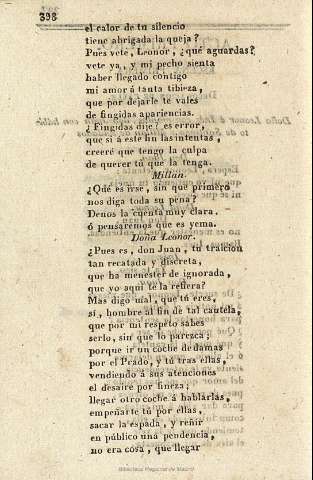 398
el calor de tu silencio
tiene abrigada la queja?
Pues vete, Leonor, ¿qué aguardas?
vete ya, y mi pecho sienta
haber llegado contigo
mi amor á tanta tibieza,
que por dejarle te vales
de fingidas apariencias.
¿Fingidas dije? es error,
que si á este fin las intentas,
creeré que tengo la culpa
de querer tú que la tenga.
Millán.
¿Qué es irse, sin que primero
nos diga toda su pena?
Denos la cuenta muy clara,
ó pensaremos que es yema.
Doña Leonor.
¿Pues es, don Juan, tu traicion
tan recatada y discreta,
que ha menester de ignorada,
que yo aqui te la refiera?
Mas digo mal, que tú eres,
sí, hombre al fin de tal cautela,
que por mi respeto sabes
serlo, sin que lo parezca;
porque ir un coche de damas
por el Prado, y tú tras ellas,
vendiendo á sus atenciones
el desaire por fineza;
llegar otro coche á hablarlas,
empeñarte tú por ellas,
sacar la espada, y reñir
en público una pendencia,
no era cosa, que llegar
Biblioteca Regional de Madrid